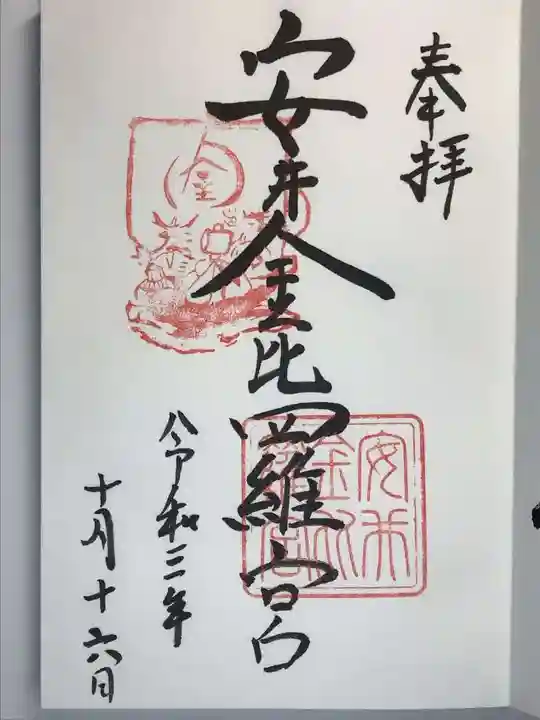 奉拝
安井金比羅宮
令和三年
十月十六日
金
安井
金比
羅宮